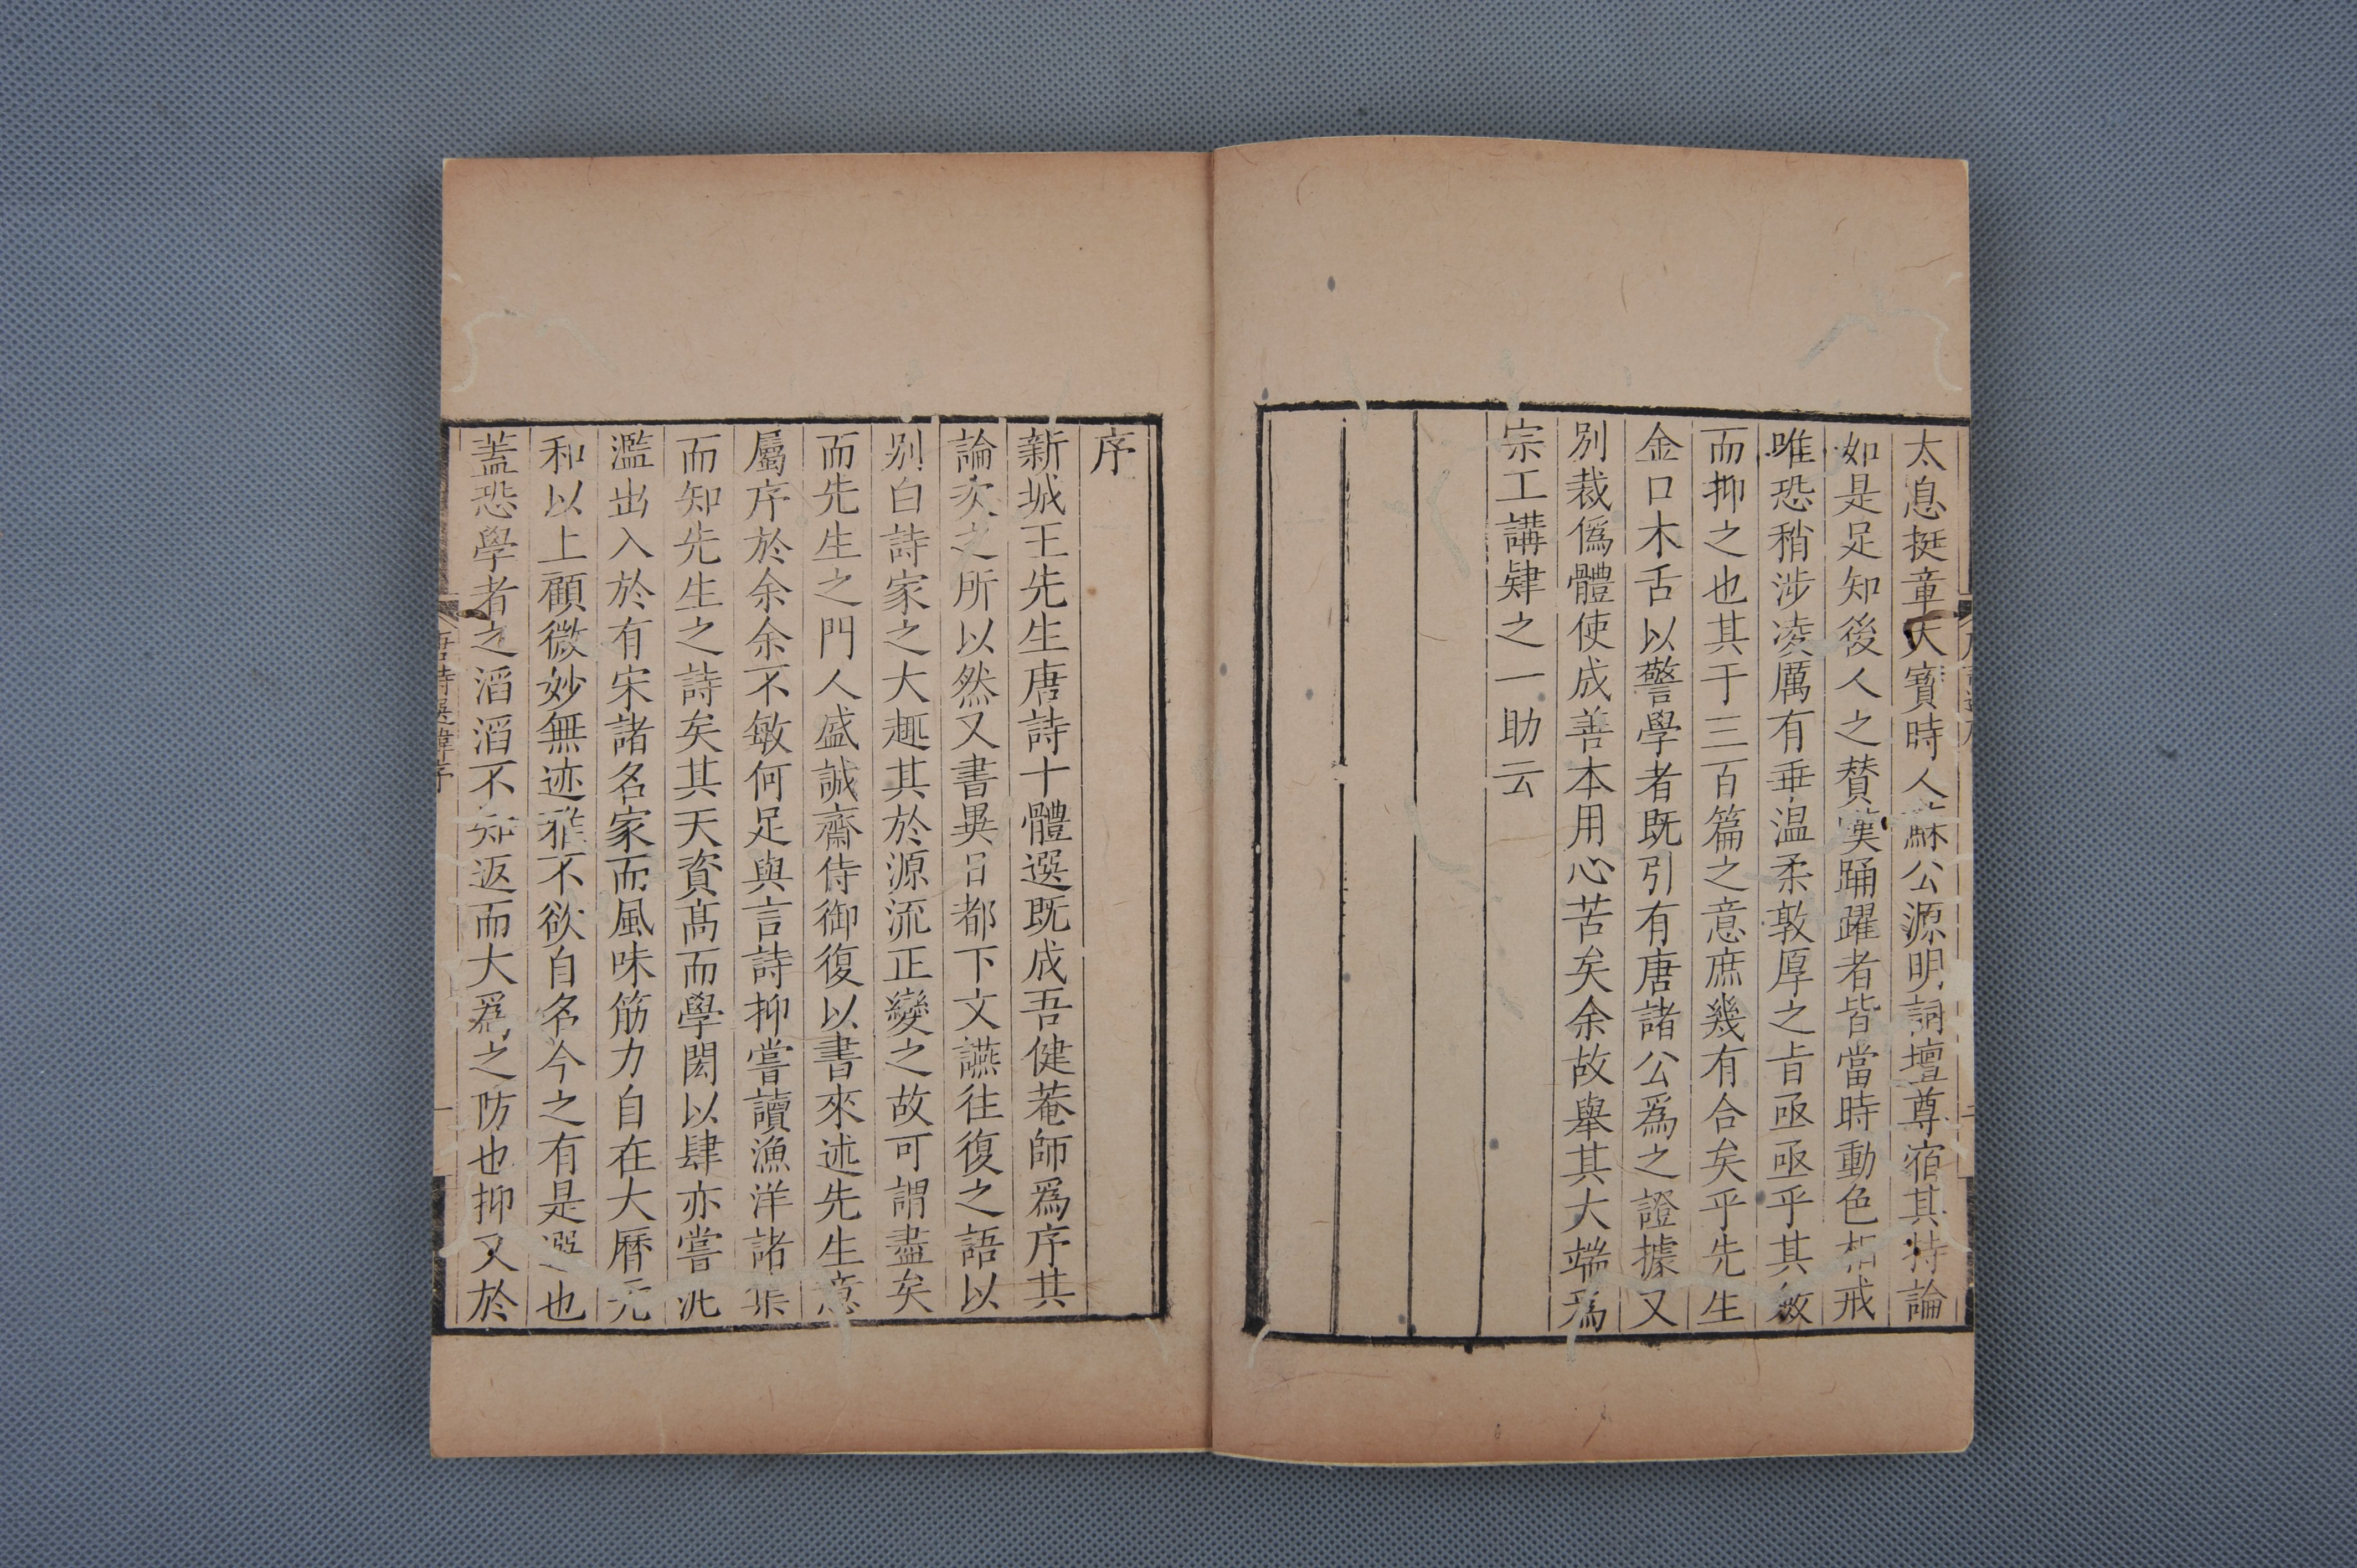 太息挺章天寶時人蘇公源明詞壇尊宿其持論
如是足知後人之賛嘆踊躍者皆當時動色相戒
唯恐稍涉凌厲有乖温柔敦厚之旨亟亟乎其斂
而抑之也其于三百篇之意庶幾有合矣乎先生
金口木舌以警學者既引有唐諸公爲之證據又
別裁僞體使成善本用心苦矣余故舉其大端爲
宗工講肄之一助云
序
新城王先生唐詩十體選既成吾健菴師爲序其
論次之所以然又書異日都下文讌往復之語以
别白詩家之大趣其於源流正變之故可謂盡矣
而先生之門人盛誠齋侍御復以書來述先生意
屬序於余余不敏何足與言詩抑嘗讀漁洋諸集
而知先生之詩矣其天資髙而學閎以肆亦嘗泛
濫出入於有宋諸名家而風味筋力自在大曆元
和以上顧微妙無迹雅不欲自名今之有是選也
蓋恐學者之滔滔不知返而大爲之防也抑又於